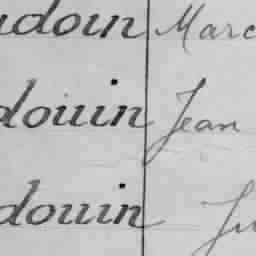 udoin Marc
douin Jean
douin Ju